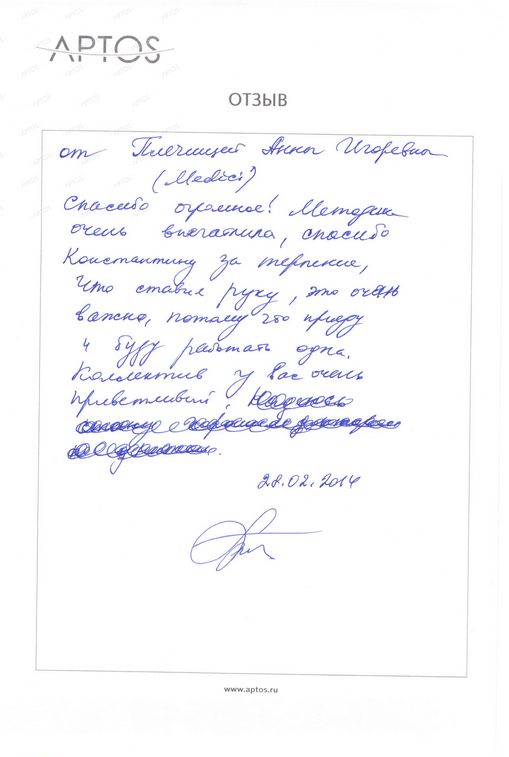 APTOS
ОТЗЫВ
от Анны Игоревны
(Medici)
Спасибо огромное! Методика
очень впечатлила, спасибо
Константину за терпение,
что ставил руку, это очень
важно, потому что приеду
и буду работать одна.
Коллектив у вас очень
приветливый.
28.02.2014
www.aptos.ru